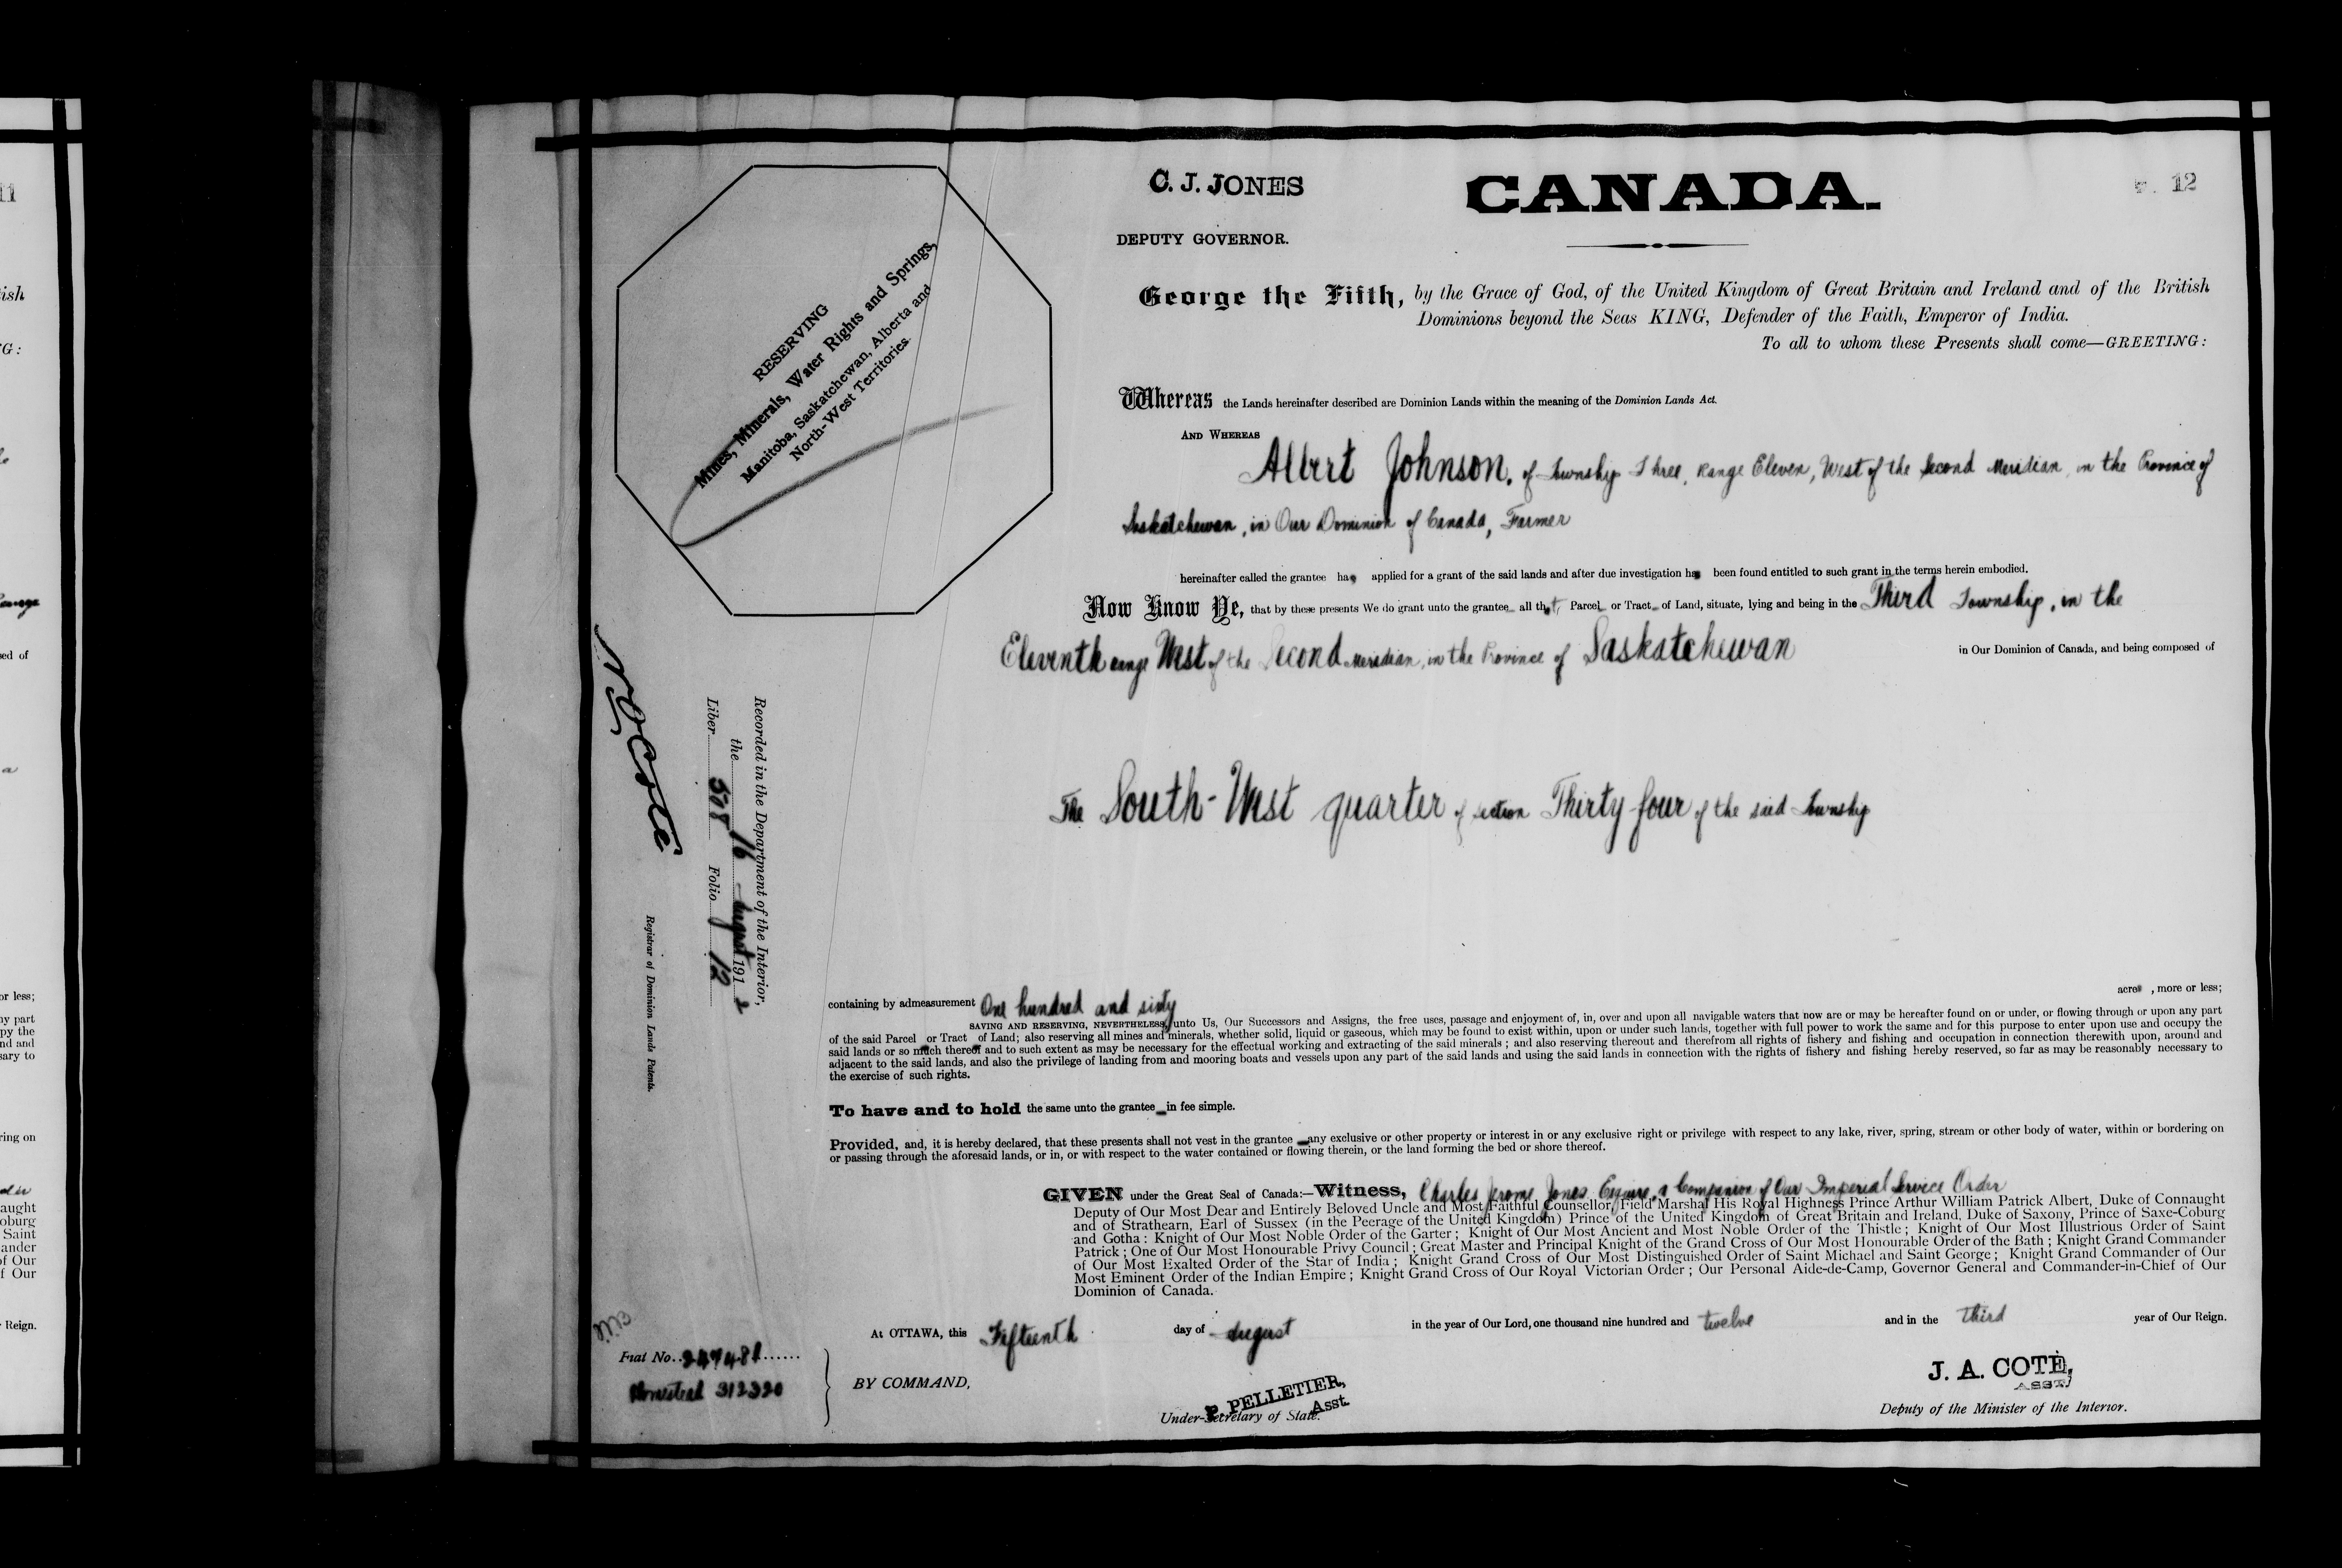 C. J. JONES
CANADA.
12
DEPUTY GOVERNOR.
George the Fifth, by the Grace of God, of the United Kingdom of Great Britain and Ireland and of the British
Dominions beyond the Seas KING, Defender of the Faith, Emperor of India.
To all to whom these Presents shall come—GREETING:
RESERVING
Mines, Minerals, Water Rights and Springs,
Manitoba, Saskatchewan, Alberta and
North-West Territories.
Whereas the Lands hereinafter described are Dominion Lands within the meaning of the Dominion Lands Act.
AND WHEREAS
Albert Johnson, of Township Three, Range Eleven, West of the Second Meridian, in the Province of
Saskatchewan, in Our Dominion of Canada, Farmer
hereinafter called the grantee has applied for a grant of the said lands and after due investigation has been found entitled to such grant in the terms herein embodied.
Now Know Ye, that by these presents We do grant unto the grantee all that Parcel or Tract of Land, situate, lying and being in the Third Township, in the
Eleventh range West of the Second Meridian, in the Province of Saskatchewan in Our Dominion of Canada, and being composed of
The South-West quarter of section Thirty four of the said Township
containing by admeasurement One hundred and sixty acres, more or less;
SAVING AND RESERVING, NEVERTHELESS, unto Us, Our Successors and Assigns, the free uses, passage and enjoyment of, in, over and upon all navigable waters that now are or may be hereafter found on or under, or flowing through or upon any part
of the said Parcel or Tract of Land; also reserving all mines and minerals, whether solid, liquid or gaseous, which may be found to exist within, upon or under such lands, together with full power to work the same and for this purpose to enter upon use and occupy the
said lands or so much thereof and to such extent as may be necessary for the effectual working and extracting of the said minerals; and also reserving thereout and therefrom all rights of fishery and fishing and occupation in connection therewith upon, around and
adjacent to the said lands, and also the privilege of landing from and mooring boats and vessels upon any part of the said lands and using the said lands in connection with the rights of fishery and fishing hereby reserved, so far as may be reasonably necessary to
the exercise of such rights.
To have and to hold the same unto the grantee in fee simple.
Provided, and, it is hereby declared, that these presents shall not vest in the grantee any exclusive or other property or interest in or any exclusive right or privilege with respect to any lake, river, spring, stream or other body of water, within or bordering on
or passing through the aforesaid lands, or in, or with respect to the water contained or flowing therein, or the land forming the bed or shore thereof.
GIVEN under the Great Seal of Canada:—Witness, Charles Jerome Jones Esquire, a Companion of Our Imperial Service Order
Deputy of Our Most Dear and Entirely Beloved Uncle and Most Faithful Counsellor, Field Marshal His Royal Highness Prince Arthur William Patrick Albert, Duke of Connaught
and of Strathearn, Earl of Sussex (in the Peerage of the United Kingdom) Prince of the United Kingdom of Great Britain and Ireland, Duke of Saxony, Prince of Saxe-Coburg
and Gotha: Knight of Our Most Noble Order of the Garter; Knight of Our Most Ancient and Most Noble Order of the Thistle; Knight of Our Most Illustrious Order of Saint
Patrick; One of Our Most Honourable Privy Council; Great Master and Principal Knight of the Grand Cross of Our Most Honourable Order of the Bath; Knight Grand Commander
of Our Most Exalted Order of the Star of India; Knight Grand Cross of Our Most Distinguished Order of Saint Michael and Saint George; Knight Grand Commander of Our
Most Eminent Order of the Indian Empire; Knight Grand Cross of Our Royal Victorian Order; Our Personal Aide-de-Camp, Governor General and Commander-in-Chief of Our
Dominion of Canada.
At OTTAWA, this Fifteenth day of August in the year of Our Lord, one thousand nine hundred and twelve and in the Third year of Our Reign.
BY COMMAND,
P. PELLETIER,
Asst.
Under-Secretary of State.
J. A. COTÉ,
ASST.
Deputy of the Minister of the Interior.
Fiat No.
Homestead 312320
Recorded in the Department of the Interior,
the 16 August 1912
Liber 508 Folio 12
N O Coté
Registrar of Dominion Lands Patents.
11
ish
G:
sed of
or less;
ny part
py the
nd and
sary to
ring on
aught
oburg
Saint
ander
of Our
f Our
Reign.